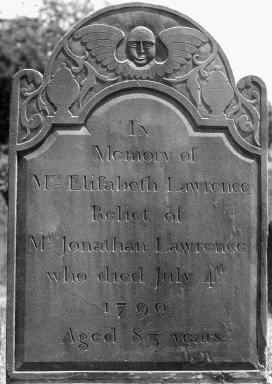 In
Memory of
Mrs. Elisabeth Lawrence
Relict of
Mr. Jonathan Lawrence,
who died July 4th
1790.
Aged 83 years.